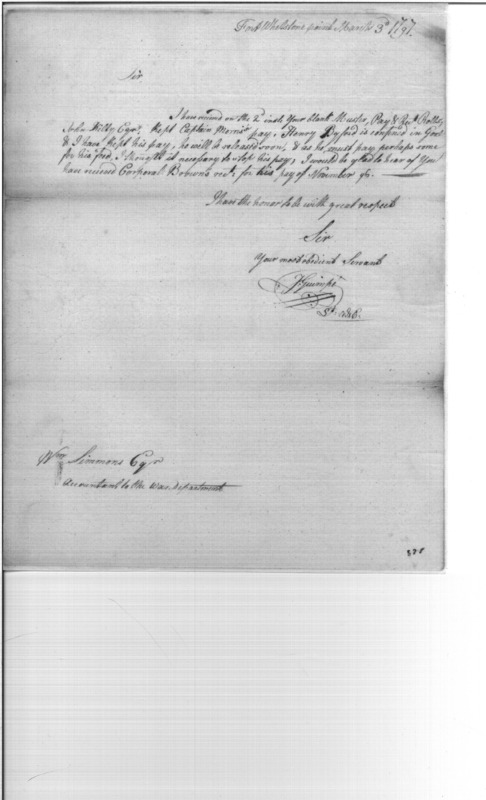 Fort Whetstone point March 3d 1797.
Sir
I have received on the 2d inst. Your blank Muster, Pay & Rect. Rolls,
John Kilty Esqr. Kept Captain Morris' pay, Henry is confined in Goal
& I have Kept his pay, he will be released soon, & as he must pay perhaps some
for his, I thought it necessary to stop his pay; I would be glad to hear of You
have received Corporal Brown's rect. for his pay of November 96.
I have the honor to be with great respect
Sir
Your most obedient Servant
Wm Simmons Esqr
Accountant to the War department